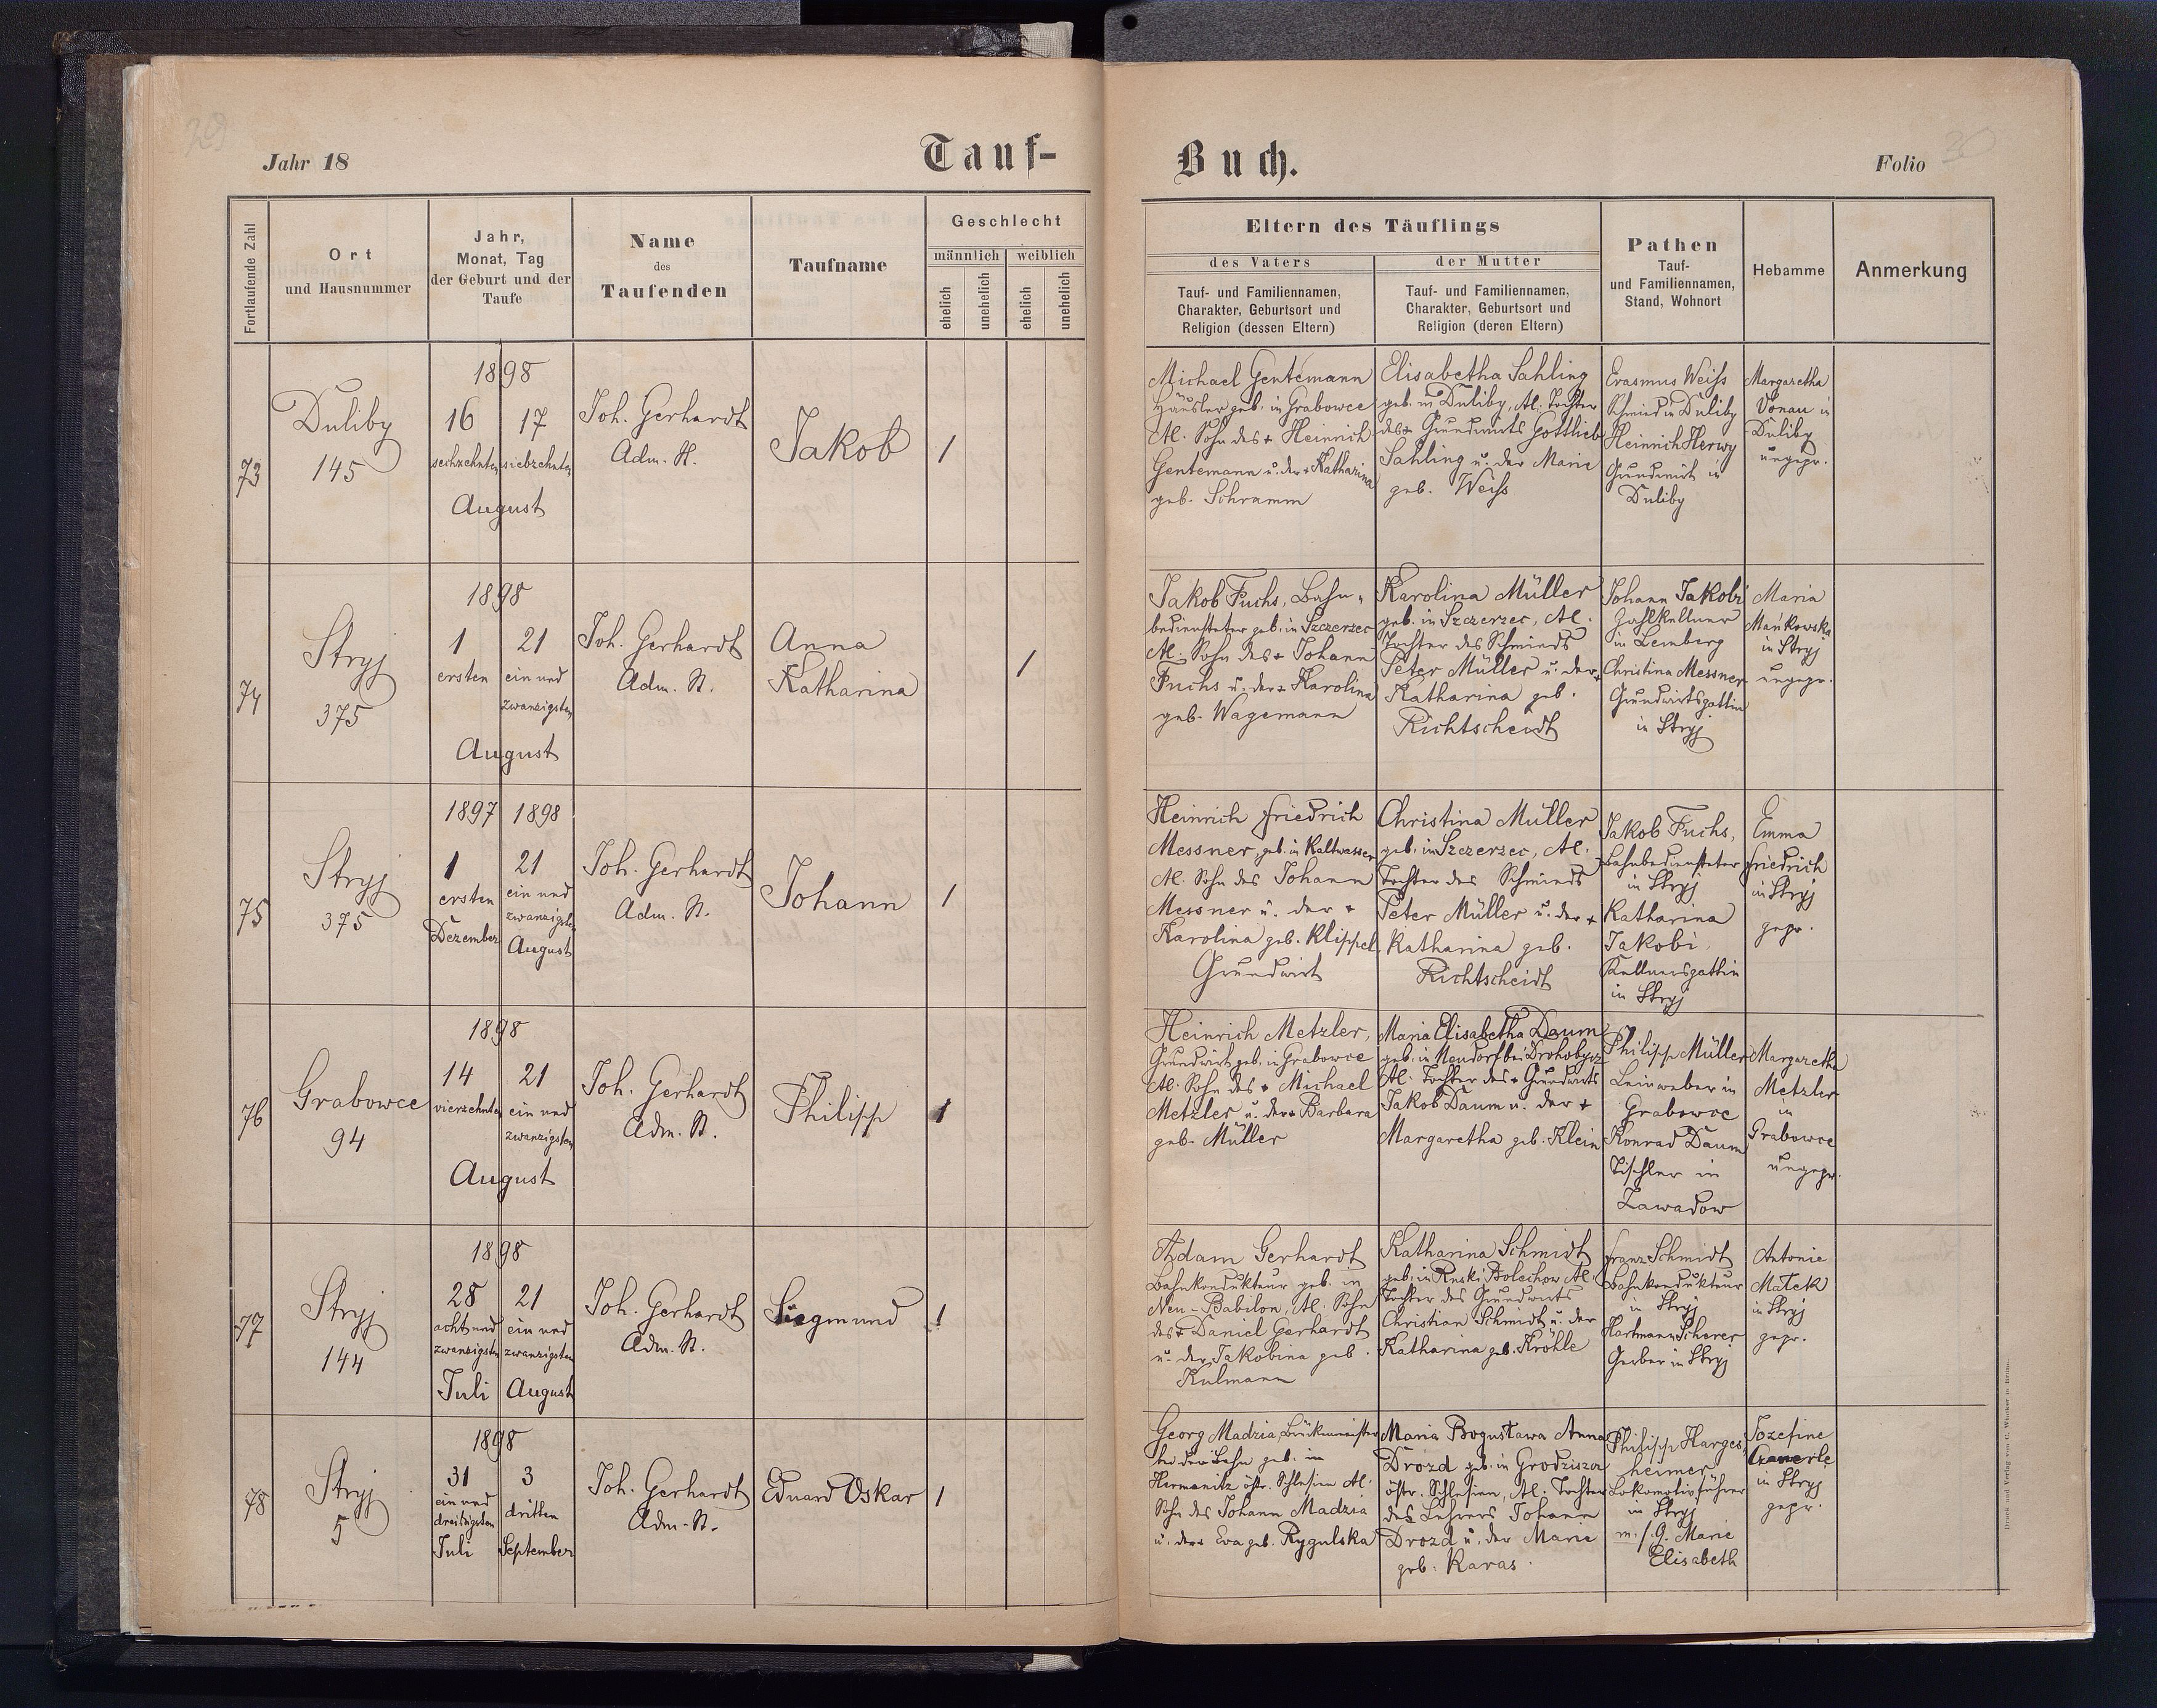 29
Jahr 18
Tauf-
Fortlaufende Zahl
Ort
und Hausnummer
Jahr,
Monat, Tag
der Geburt und der
Taufe
Name
des
Taufenden
Taufname
Geschlecht
männlich
weiblich
ehelich
unehelich
ehelich
unehelich
Buch.
Folio
30
Eltern des Täuflings
des Vaters
Tauf- und Familiennamen,
Charakter, Geburtsort und
Religion (dessen Eltern)
der Mutter
Tauf- und Familiennamen,
Charakter, Geburtsort und
Religion (deren Eltern)
Pathen
Tauf-
und Familiennamen,
Stand, Wohnort
Hebamme
Anmerkung
73
Duliby
145
1898
16 17
sechzehnten siebzehnten
August
Joh. Gerhardt
Adm. H.
Jakob
1
Michael Gentemann
Häusler geb. in Grabowce
Al. Sohn des + Heinrich
Gentemann u. der + Katharina
geb. Schramm
Elisabetha Sahling
geb. in Duliby, Al. Tochter
des + Grundwirts Gottlieb
Sahling u. der Marie
geb. Weiss
Erasmus Weiss
Schmied in Duliby
Heinrich Herwy
Grundwirt in
Duliby
Margaretha
Vonau in
Duliby
ungepr.
74
Stryj
375
1898
1 21
ersten ein und
zwanzigsten
August
Joh. Gerhardt
Adm. St.
Anna
Katharina
1
Jakob Fuchs, Bahn-
bediensteter geb. in Szczerzec
Al. Sohn des + Johann
Fuchs u. der + Karolina
geb. Wagemann
Karolina Müller
geb. in Szczerzec, Al.
Tochter des Schmieds
Peter Müller u. der +
Katharina geb.
Richtscheidt
Johann Jakobi
Zahlkellner
in Lemberg
Christina Messner
Grundwirtsgattin
in Stryj
Maria
Mańkowska
in Stryj
ungepr.
75
Stryj
375
1897 1898
1 21
ersten ein und
zwanzigsten
Dezember August
Joh. Gerhardt
Adm. St.
Johann
1
Heinrich Friedrich
Messner, geb. in Kaltwasser
Al. Sohn des Johann
Messner u. der +
Karolina geb. Klippel,
Grundwirt
Christina Müller
geb. in Szczerzec, Al.
Tochter des Schmieds
Peter Müller u. der +
Katharina geb.
Richtscheidt
Jakob Fuchs,
Bahnbediensteter
in Stryj
Katharina
Jakobi,
Kellnersgattin
in Stryj
Emma
Friedrich
in Stryj
gepr.
76
Grabowce
94
1898
14 21
vierzehnten ein und
zwanzigsten
August
Joh. Gerhardt
Adm. St.
Philipp
1
Heinrich Metzler,
Grundwirt geb. in Grabowce
Al. Sohn des + Michael
Metzler u. der + Barbara
geb. Müller
Maria Elisabetha Daum
geb. in Neudorf bei Drohobycz
Al. Tochter des + Grundwirts
Jakob Daum u. der +
Margaretha geb. Klein
Philipp Müller
Leinweber in
Grabowce
Konrad Daum
Tischler in
Zawadow
Margaretha
Metzler
in
Grabowce
ungepr.
77
Stryj
144
1898
28 21
acht und ein und
zwanzigsten zwanzigsten
Juli August
Joh. Gerhardt
Adm. St.
Siegmund
1
Adam Gerhardt
Bahnkondukteur geb. in
Neu-Babilon, Al. Sohn
des + Daniel Gerhardt
u. der Jakobina geb.
Kulmann
Katharina Schmidt
geb. in Ruski Bolechow Al.
Tochter des Grundwirts
Christian Schmidt u. der
Katharina geb. Kröhle
Franz Schmidt
Bahnkondukteur
in Stryj
Hartmann Scherer
Gerber in Stryj
Antonie
Matek
in Stryj
gepr.
78
Stryj
5
1898
31 3
ein und dritten
dreissigsten
Juli September
Joh. Gerhardt
Adm. St.
Eduard Oskar
1
Georg Madzia, Brückenmeister
bei der Bahn geb. in
Hermanitz östr. Schlesien Al.
Sohn des Johann Madzia
u. der + Eva geb. Rygulska
Maria Bogusława Anna
Drozd geb. in Grodziszcz
östr. Schlesien, Al. Tochter
des Lehrers Johann
Drozd u. der Marie
geb. Karas.
Philipp Harges-
heimer,
Lokomotivführer
in Stryj
m. s. G. Marie
Elisabeth
Jozefine
in Stryj
gepr.